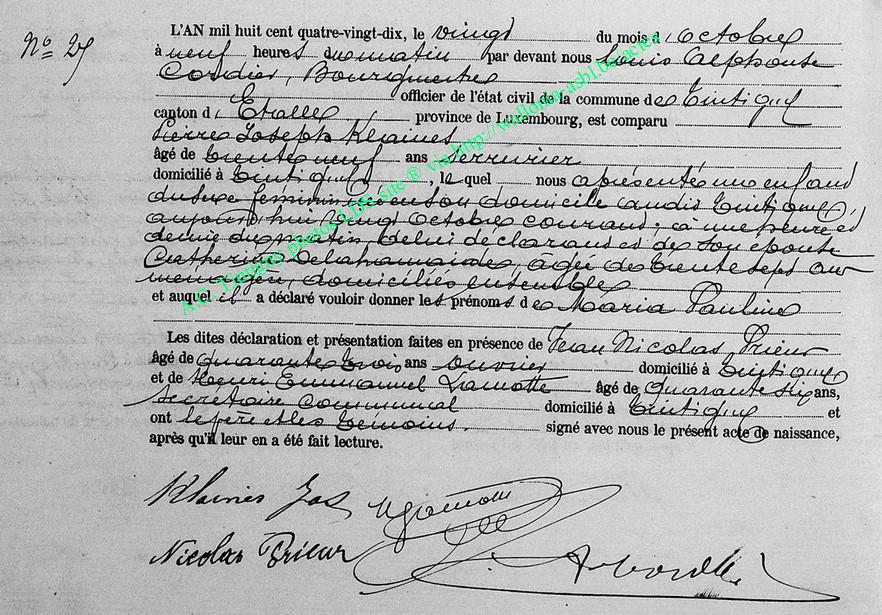 N° 25
L'AN mil huit cent quatre-vingt-dix, le vingt du mois d'Octobre
à neuf heures du matin par devant nous Louis Alphonse
Cordier, Bourgmestre
officier de l'état civil de la commune de Tintigny
canton d'Etalle, province de Luxembourg, est comparu
Pierre Joseph Klaines
âgé de trente neuf ans Serrurier
domicilié à Tintigny, lequel nous a présenté un enfant
du sexe féminin né en son domicile audit Tintigny,
aujourd'hui vingt Octobre courant, à une heure et
demie du matin, de lui déclarant et de son épouse
Catherine Delahamaide, âgée de trente sept ans
ménagère, domiciliés ensemble
et auquel il a déclaré vouloir donner les prénoms de Maria Pauline
Les dites déclaration et présentation faites en présence de Jean Nicolas Prieur
âgé de quarante trois ans ouvrier domicilié à Tintigny
et de Henri Emmanuel Lamotte âgé de quarante six ans,
secrétaire communal domicilié à Tintigny et
ont le père et les témoins. signé avec nous le présent acte de naissance,
après qu'il leur en a été fait lecture.
Klaines Jos
Nicolas Prieur